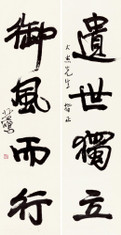 遺世獨立
御風而行